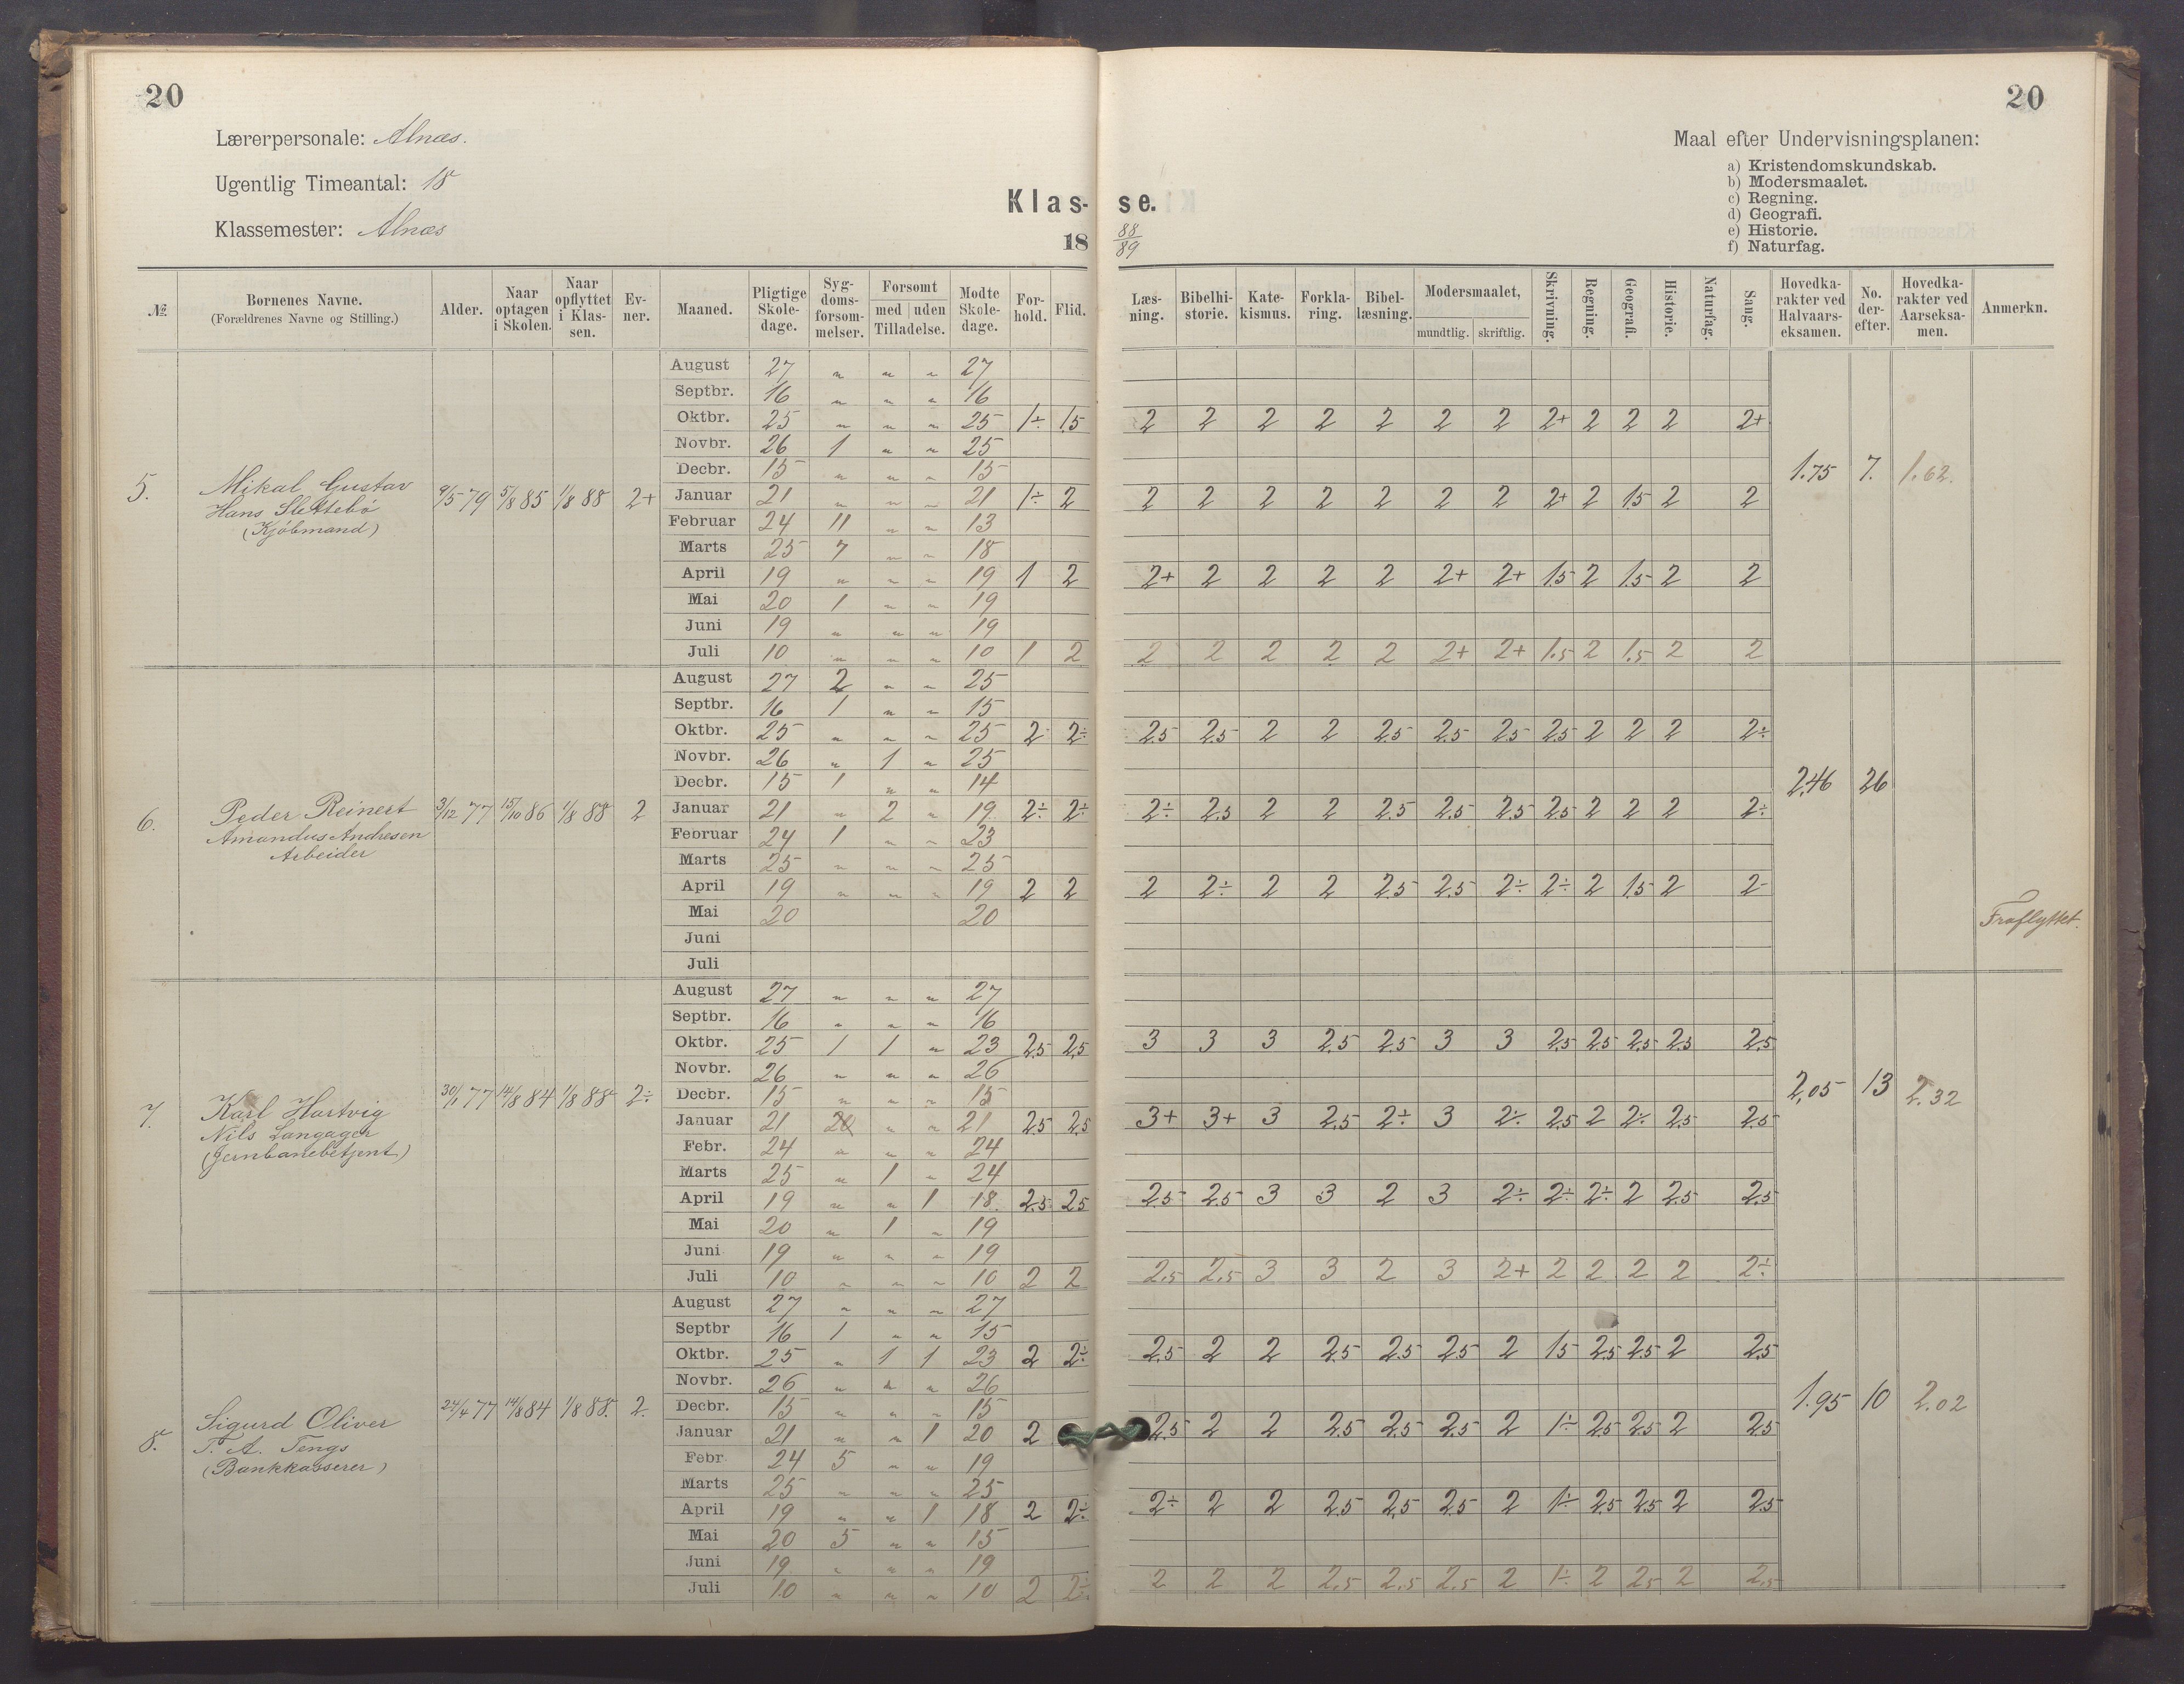 20
20
Lærerpersonale: Alnæs.
Ugentlig Timeantal: 18
Klassemester: Alnæs
Klas- se.
18 88/89
Maal efter Undervisningsplanen:
a) Kristendomskundskab.
b) Modersmaalet.
c) Regning.
d) Geografi.
e) Historie.
f) Naturfag.
№ | Børnenes Navne. (Forældrenes Navne og Stilling.) | Alder. | Naar optagen i Skolen. | Naar opflyttet i Klassen. | Evner. | Maaned. | Pligtige Skoledage. | Sygdomsforsommelser. | Forsømt med | uden Tilladelse. | Mødte Skoledage. | Forhold. | Flid. | Læsning. | Bibelhistorie. | Katekismus. | Forklaring. | Bibellæsning. | Modersmaalet, mundtlig. | skriftlig. | Skrivning. | Regning. | Geografi. | Historie. | Naturfag. | Sang. | Hovedkarakter ved Halvaarseksamen. | No. derefter. | Hovedkarakter ved Aarseksamen. | Anmerkn.
5. Mikal Gustav
Hans Slettebø
(Kjøbmand)
9/5 79 5/8 85 1/8 88 2+
August 27 " " " 27
Septbr. 16 " " " 16
Oktbr. 25 " " " 25 1÷ 1.5 2 2 2 2 2 2 2 2+ 2 2 2 2+
Novbr. 26 1 " " 25
Decbr. 15 " " " 15
1.75 7. 1.62.
Januar 21 " " " 21 1÷ 2 2 2 2 2 2 2 2 2+ 2 1.5 2 2
Februar 24 11 " " 13
Marts 25 7 " " 18
April 19 " " " 19 1 2 2+ 2 2 2 2 2+ 2+ 1.5 2 1.5 2 2
Mai 20 1 " " 19
Juni 19 " " " 19
Juli 10 " " " 10 1 2 2 2 2 2 2 2+ 2+ 1.5 2 1.5 2 2
6. Peder Reinert
Amandus Andresen
Arbeider
3/12 77 15/10 86 1/8 88 2
August 27 2 " " 25
Septbr. 16 1 " " 15
Oktbr. 25 " " " 25 2 2÷ 2.5 2.5 2 2 2.5 2.5 2.5 2.5 2 2 2 2÷
Novbr. 26 " 1 " 25
Decbr. 15 1 " " 14
2.46 26
Januar 21 " 2 " 19 2÷ 2÷ 2÷ 2.5 2 2 2.5 2.5 2.5 2.5 2 2 2 2÷
Februar 24 1 " " 23
Marts 25 " " " 25
April 19 " " " 19 2 2 2 2÷ 2 2 2.5 2.5 2÷ 2÷ 2 1.5 2 2-
Mai 20 20
Fraflyttet.
Juni
Juli
7. Karl Hartvig
Nils Langager
(Jernbanebetjent)
30/1 77 14/8 84 1/8 88 2÷
August 27 " " " 27
Septbr. 16 " " " 16
Oktbr. 25 1 1 " 23 2.5 2.5 3 3 3 2.5 2.5 3 3 2.5 2.5 2.5 2.5 2.5
Novbr. 26 " " " 26
Decbr. 15 " " " 15
2,05 13 2.32
Januar 21 20 " " 21 2.5 2.5 3+ 3+ 3 2.5 2÷ 3 2÷ 2.5 2 2÷ 2.5 2.5
Febr. 24 " " " 24
Marts 25 " 1 " 24
April 19 " " 1 18. 2.5 2.5 2.5 2.5 3 3 2 3 2÷ 2÷ 2÷ 2 2.5 2.5
Mai 20 " 1 " 19
Juni 19 " " " 19
Juli 10 " " " 10 2 2 2.5 2.5 3 3 2 3 2+ 2 2 2 2 2÷
8. Sigurd Oliver
T. A. Tengs
(Bankkasserer)
24/4 77 14/8 84 1/8 88. 2.
August 27 " " " 27
Septbr 16 1 " " 15
Oktbr. 25 " 1 1 23 2 2÷ 2.5 2 2 2.5 2.5 2.5 2 1.5 2.5 2.5 2 2.5
Novbr. 26 " " " 26
Decbr. 15 " " " 15
1.95 10 2.02
Januar 21 " " 1 20 2 2.5 2 2 2.5 2.5 2.5 2 1÷ 2.5 2.5 2 2.5
Febr 24 5 " " 19
Marts 25 " " " 25
April 19 " " 1 18 2 2÷ 2÷ 2 2 2.5 2.5 2.5 2 1÷ 2.5 2.5 2 2.5
Mai 20 5 " " 15
Juni 19 " " " 19
Juli 10 " " " 10 2 2÷ 2 2 2 2.5 2.5 2.5 2 1÷ 2 2.5 2 2.5